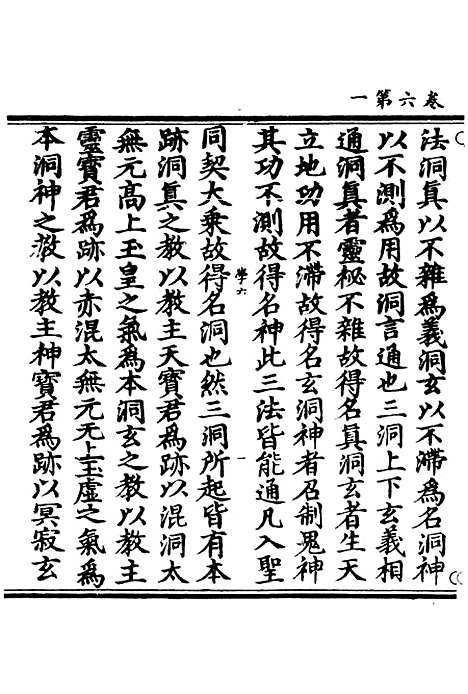 卷六第一
法洞真以不雜為義洞玄以不滯為名洞神
以不測為用故洞言通也三洞上下玄義相
通洞真者靈秘不雜故得名真洞玄者生天
立地功用不滯故得名玄洞神者召制鬼神
其功不測故得名神此三法皆能通凡入聖
學六
一
同契大乘故得名洞也然三洞所起皆有本
跡洞真之教以教主天寶君為跡以混洞太
無元高上玉皇之氣為本洞玄之教以教主
靈寶君為跡以赤混太無元无上玉虛之氣為
本洞神之教以教主神寶君為跡以冥寂玄